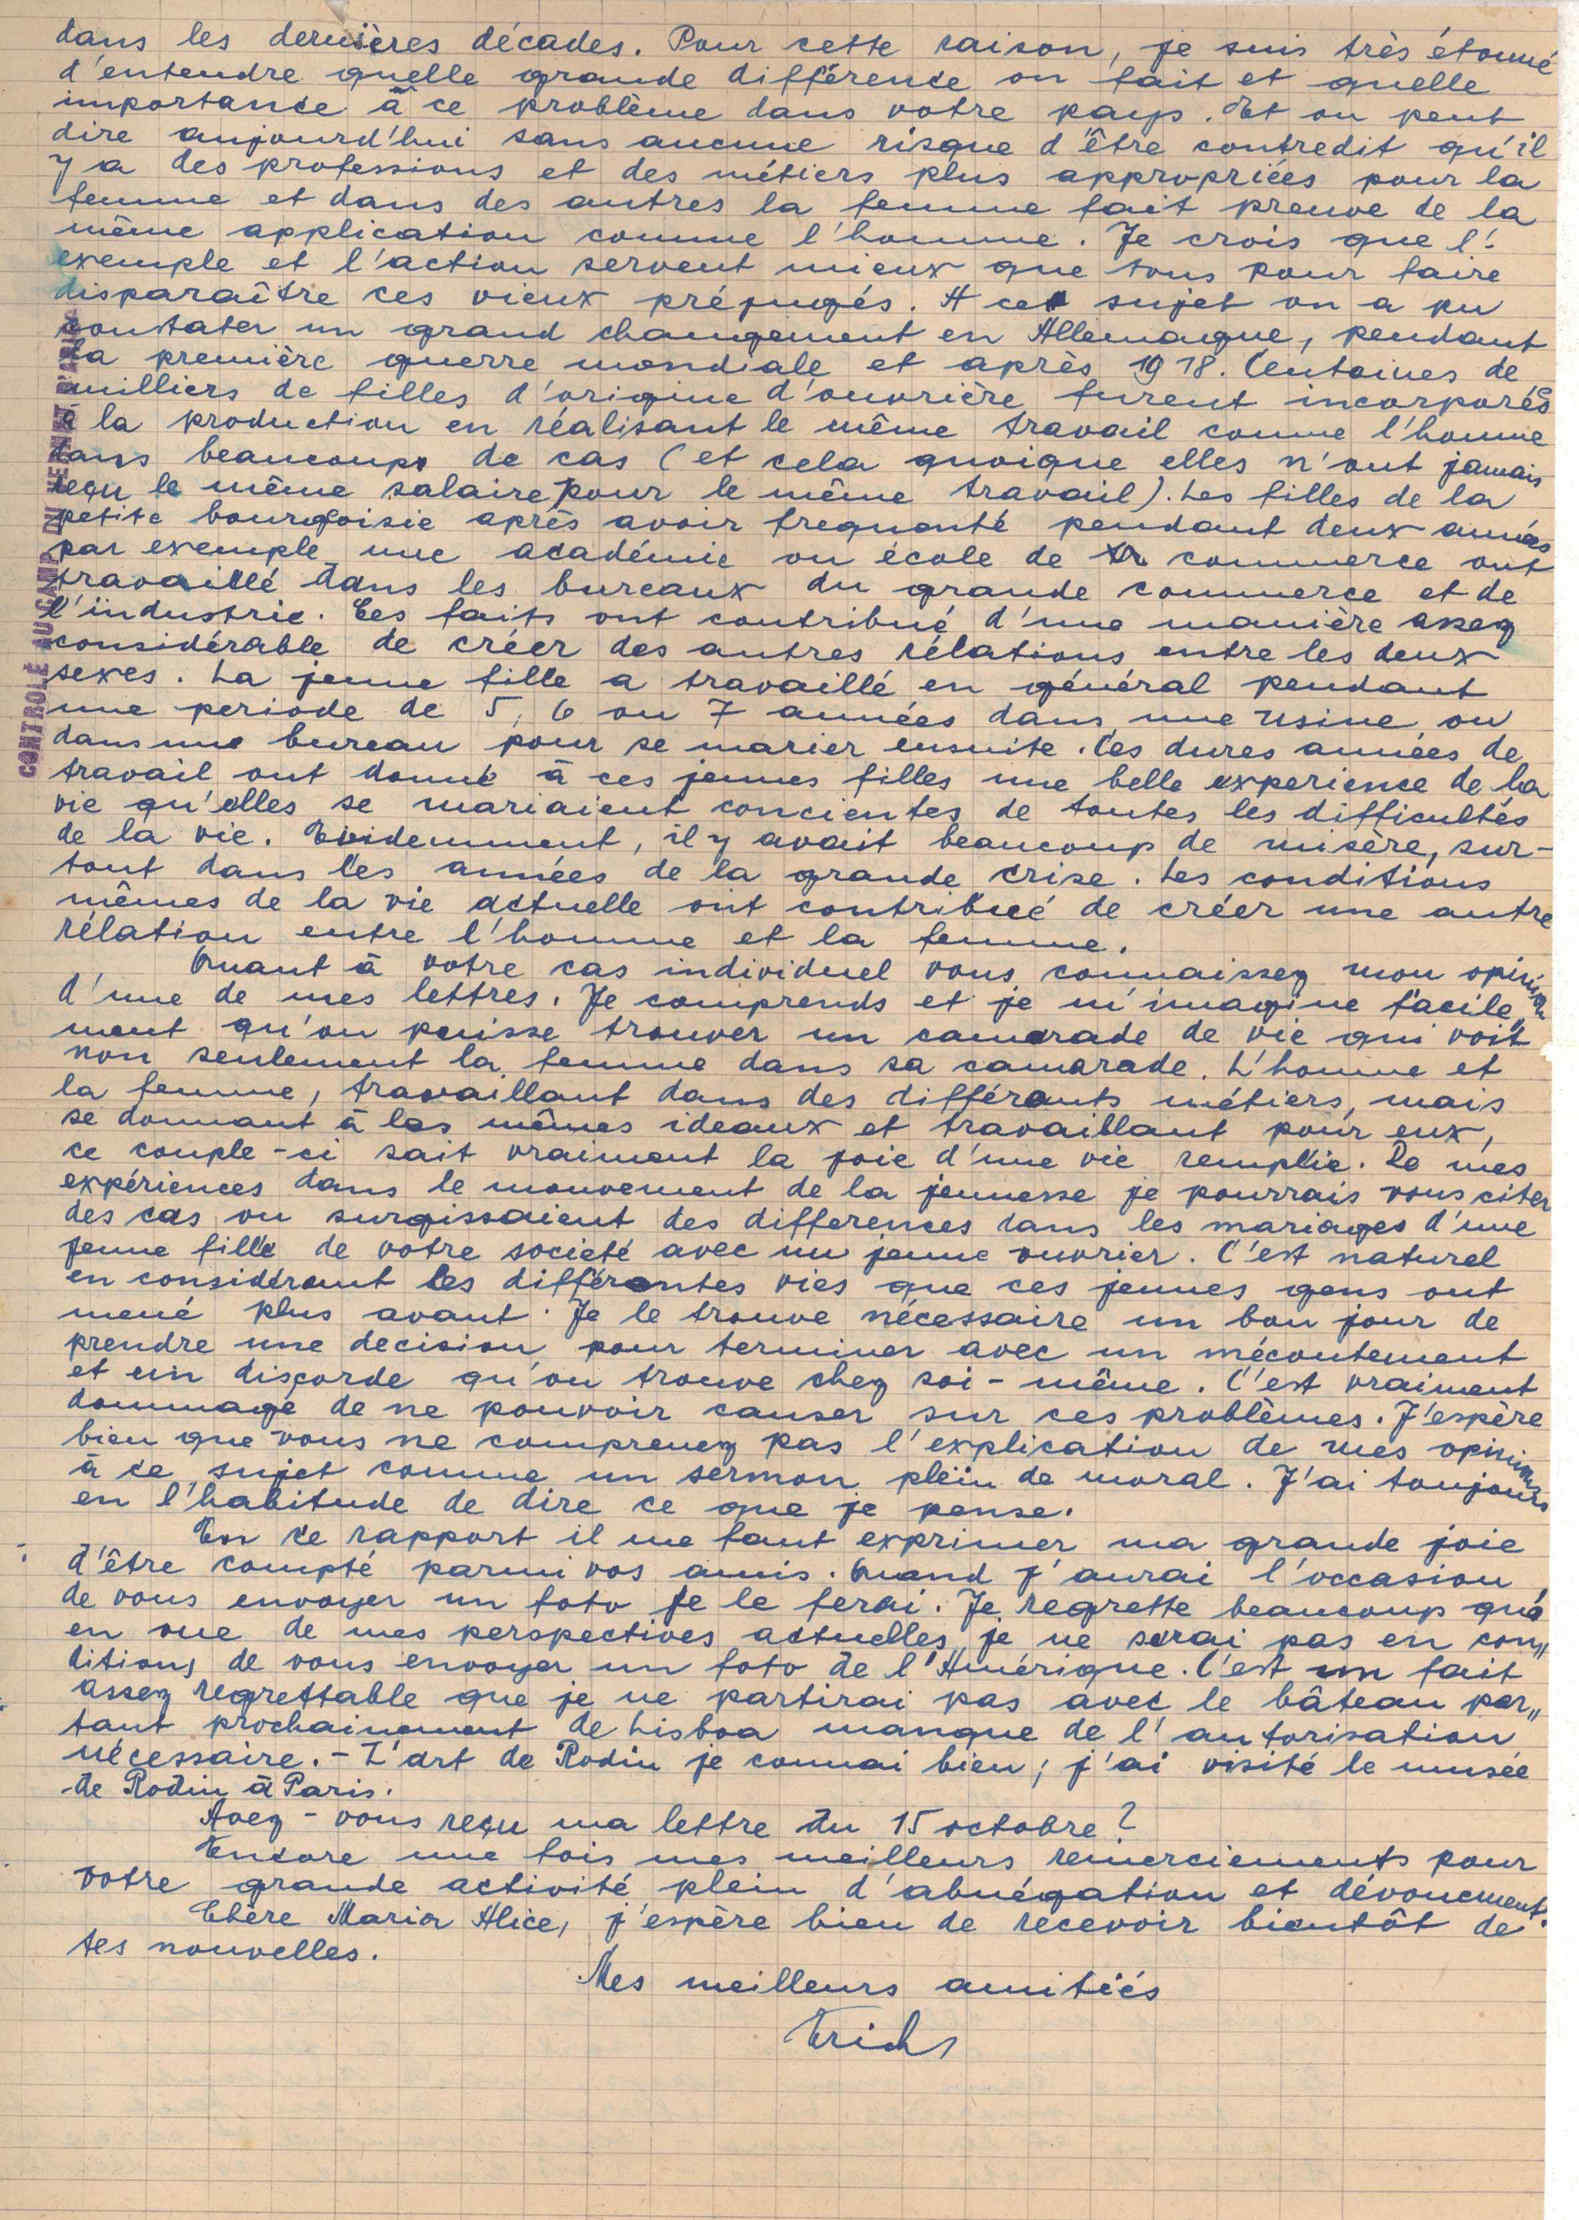 dans les dernières décades. Pour cette raison, je suis très étonné
d'entendre quelle grande différence on fait et quelle
importance à ce problème dans votre pays. Et on peut
dire aujourd'hui sans aucune risque d'être contredit qu'il
y a des professions et des métiers plus appropriées pour la
femme et dans des autres la femme fait preuve de la
même application comme l'homme. Je crois que l'-
exemple et l'action servent mieux que tous pour faire
disparaître ces vieux préjugés. A ce sujet on a pu
constater un grand changement en Allemagne, pendant
la première guerre mondiale et après 1918. Centaines de
milliers de filles d'origine d'ouvrière furent incorporés
à la production en réalisant le même travail comme l'homme
dans beaucoup de cas (et cela quoique elles n'ont jamais
reçu le même salaire pour le même travail). Les filles de la
petite bourgoisie après avoir frequanté pendant deux années
par exemple une académie ou école de commerce ont
travaillé dans les bureaux du grande commerce et de
l'industrie. Ces faits ont contribué d'une manière assez
considérable de créer des autres rélations entre les deux
sexes. La jeune fille a travaillé en général pendant
une periode de 5, 6 ou 7 années dans une usine ou
dans une bureau pour se marier ensuite. Ces dures années de
travail ont donné à ces jeunes filles une belle experience de la
vie qu'elles se mariaient concientes de toutes les difficultés
de la vie. Evidemment, il y avait beaucoup de misère, sur-
tout dans les années de la grande crise. Les conditions
mêmes de la vie actuelle ont contribué de créer une autre
rélation entre l'homme et la femme.
Quant à votre cas individuel vous connaissez mon opinion
d'une de mes lettres. Je comprends et je m'imagine facile„
ment qu'on puisse trouver un camarade de vie qui voit
non seulement la femme dans sa camarade. L'homme et
la femme, travaillant dans des différants métiers, mais
se donnant à les mêmes ideaux et travaillant pour eux,
ce couple-ci sait vraiment la joie d'une vie remplie. De mes
expériences dans le mouvement de la jeunesse je pourrais vous citer
des cas ou surgissaient des differences dans les mariages d'une
jeune fille de votre société avec un jeune ouvrier. C'est naturel
en considérant les différentes vies que ces jeunes gens ont
mené plus avant. Je le trouve nécessaire un bon jour de
prendre une decision pour terminer avec un mécontement
et un discorde qu'on trouve chez soi-même. C'est vraiment
dommage de ne pouvoir causer sur ces problèmes. J'espère
bien que vous ne comprenez pas l'explication de mes opinions
à ce sujet comme un sermon plein de moral. J'ai toujours
eu l'habitude de dire ce que je pense.
En ce rapport il me faut exprimer ma grande joie
d'être compté parmi vos amis. Quand j'aurai l'occasion
de vous envoyer un foto je le ferai. Je regrette beaucoup qu'à
en vue de mes perspectives actuelles je ne serai pas en con„
ditions de vous envoyer un foto de l'Amérique. C'est un fait
assez regrettable que je ne partirai pas avec le bâteau par„
tant prochainement de Lisboa manque de l'autorisation
nécessaire. - L'art de Rodin je connai bien; j'ai visité le musée
de Rodin à Paris.
Avez-vous reçu ma lettre du 15 octobre?
Encore une fois mes meilleurs remerciements pour
votre grande activité plein d'abnégation et dévouement.
Chère Maria Alice, j'espère bien de recevoir bientôt de
tes nouvelles.
Mes meilleurs amitiés
Erich
CONTROLÉ AU CAMP DU VERNET D'ARIÈGE